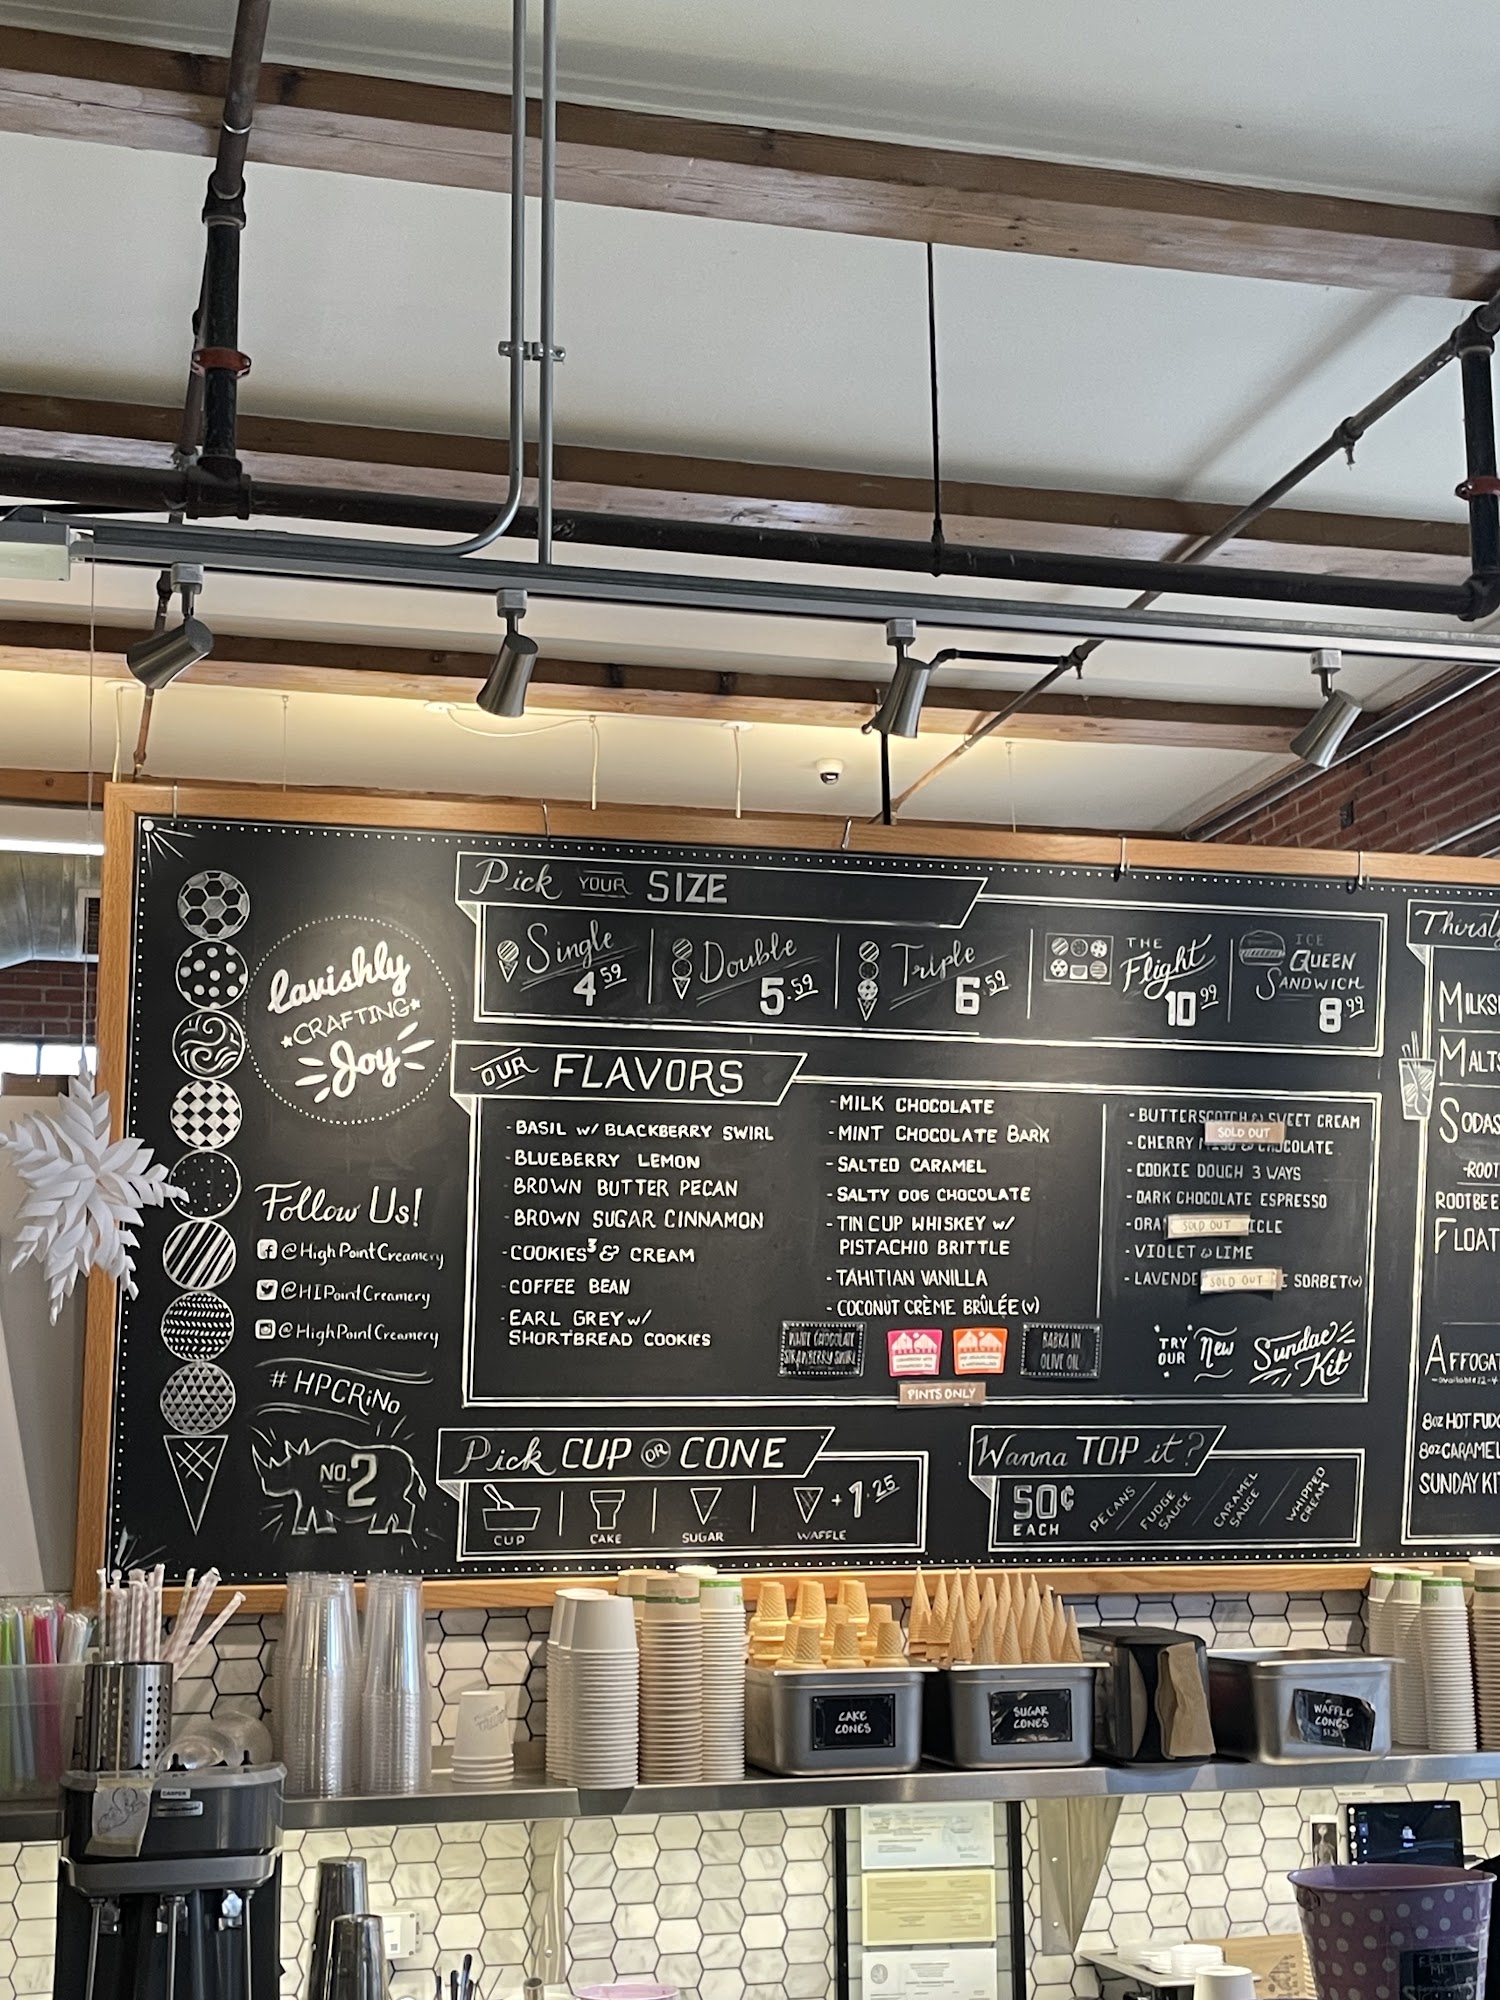 Lavishly
CRAFTING
Joy
Follow Us!
@HighPointCreamery
@HIPointCreamery
@HighPointCreamery
#HPCRiNo
NO. 2
Pick YOUR SIZE
Single
4.59
Double
5.59
Triple
6.59
THE
Flight
10.99
ICE
QUEEN
SANDWICH
8.99
OUR FLAVORS
-BASIL w/ BLACKBERRY SWIRL
-BLUEBERRY LEMON
-BROWN BUTTER PECAN
-BROWN SUGAR CINNAMON
-COOKIES³ & CREAM
-COFFEE BEAN
-EARL GREY w/
SHORTBREAD COOKIES
-MILK CHOCOLATE
-MINT CHOCOLATE BARK
-SALTED CARAMEL
-SALTY DOG CHOCOLATE
-TIN CUP WHISKEY w/
PISTACHIO BRITTLE
-TAHITIAN VANILLA
-COCONUT CRÈME BRÛLÉE (v)
-BUTTERSCOTCH & SWEET CREAM
SOLD OUT
-CHERRY
-COOKIE DOUGH 3 WAYS
-DARK CHOCOLATE ESPRESSO
SOLD OUT
-VIOLET & LIME
SOLD OUT
SORBET (v)
WHITE CHOCOLATE
STRAWBERRY SWIRL
BABKA IN
OLIVE OIL
PINTS ONLY
TRY
OUR
New
Sundae
Kit
Pick CUP OR CONE
CUP
CAKE
SUGAR
WAFFLE
+1.25
Wanna TOP it?
50¢
EACH
PECANS
FUDGE
SAUCE
CARAMEL
SAUCE
WHIPPED
CREAM
ROOT
8oz HOT
8oz CARAMEL
CAKE
CONES
SUGAR
CONES
WAFFLE
CONES